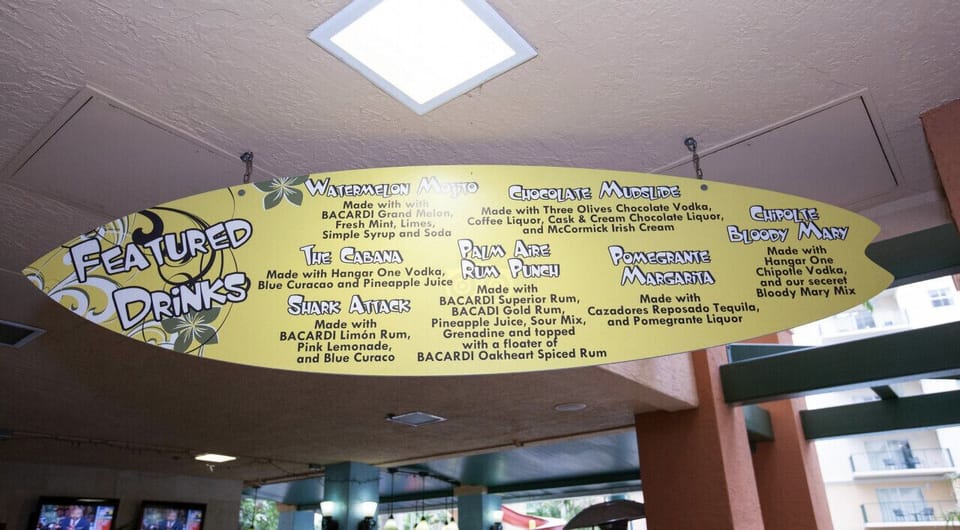 FEATURED
DRINKS
WATERMELON MOJITO
Made with with
BACARDI Grand Melon,
Fresh Mint, Limes,
Simple Syrup and Soda
CHOCOLATE MUDSLIDE
Made with Three Olives Chocolate Vodka,
Coffee Liquor, Cask & Cream Chocolate Liquor,
and McCormick Irish Cream
CHIPOLTE
BLOODY MARY
Made with
Hangar One
Chipotle Vodka,
and our seceret
Bloody Mary Mix
THE CABANA
Made with Hangar One Vodka,
Blue Curacao and Pineapple Juice
PALM AIRE
RUM PUNCH
Made with
BACARDI Superior Rum,
BACADI Gold Rum,
Pineapple Juice, Sour Mix,
Grenadine and topped
with a floater of
BACARDI Oakheart Spiced Rum
POMEGRANTE
MARGARITA
Made with
Cazadores Reposado Tequila,
and Pomegrante Liquor
SHARK ATTACK
Made with
BACARDI Limón Rum,
Pink Lemonade,
and Blue Curaco